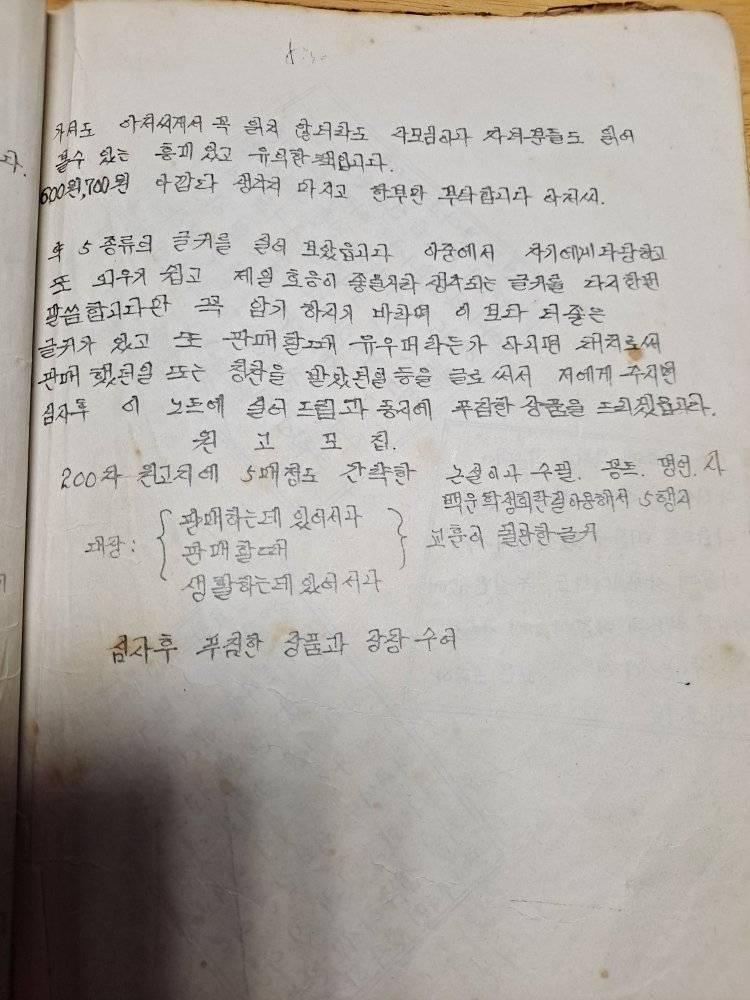 가셔도 아저씨께서 꼭 읽지 않더라도 사모님이나 자녀분들도 읽어
볼수 있는 흥미 있고 유익한 책입니다.
600원, 700원 아깝다 생각치 마시고 한부만 부탁합니다 아저씨.
위 5 종류의 글귀를 실어 보았읍니다 이중에서 자기에게 타당하고
또 외우기 쉽고 제일 호응이 좋을거라 생각되는 글귀를 다시한번
말씀합니다만 꼭 암기 하시기 바라며 이 보다 더좋은
글귀가 있고 또 판매할때 유우머라든가 아니면 대처로써
판매 했던일 또는 칭찬을 받았던일 등을 글로 써서 저에게 주시면
심사후 이 노트에 실어 드림과 동시에 푸짐한 상품을 드리겠읍니다.
원 고 모 집.
200자 원고지에 5매정도 간략한 논설이나 수필. 꽁트. 명언. 시
백운학생회란걸 이용해서 5행시
대상: 판매하는데 있어서나
판매할때
생활하는데 있어서나
교훈이 될만한글귀
심사후 푸짐한 상품과 상장 수여